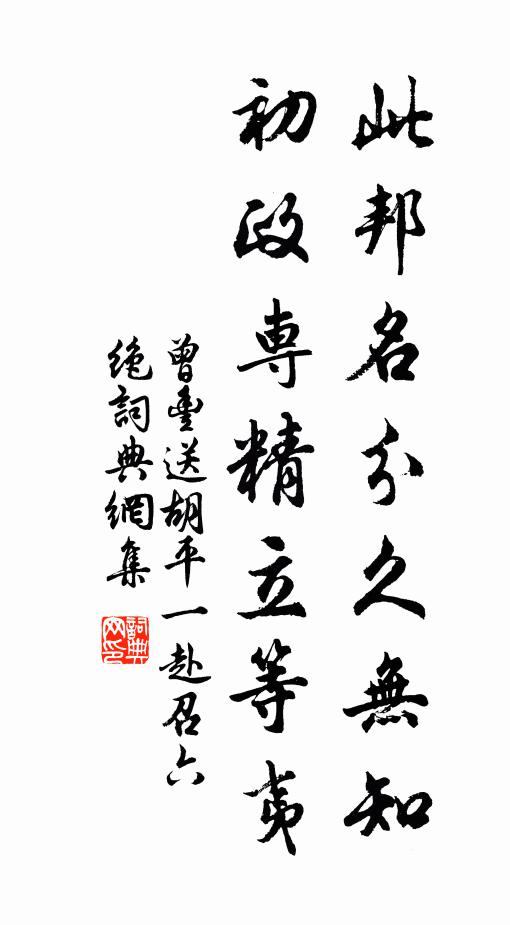 此邦名分久無知
初政専精立等夷
曾豐送胡平一赴召六
絶詞典網集
詞典網印